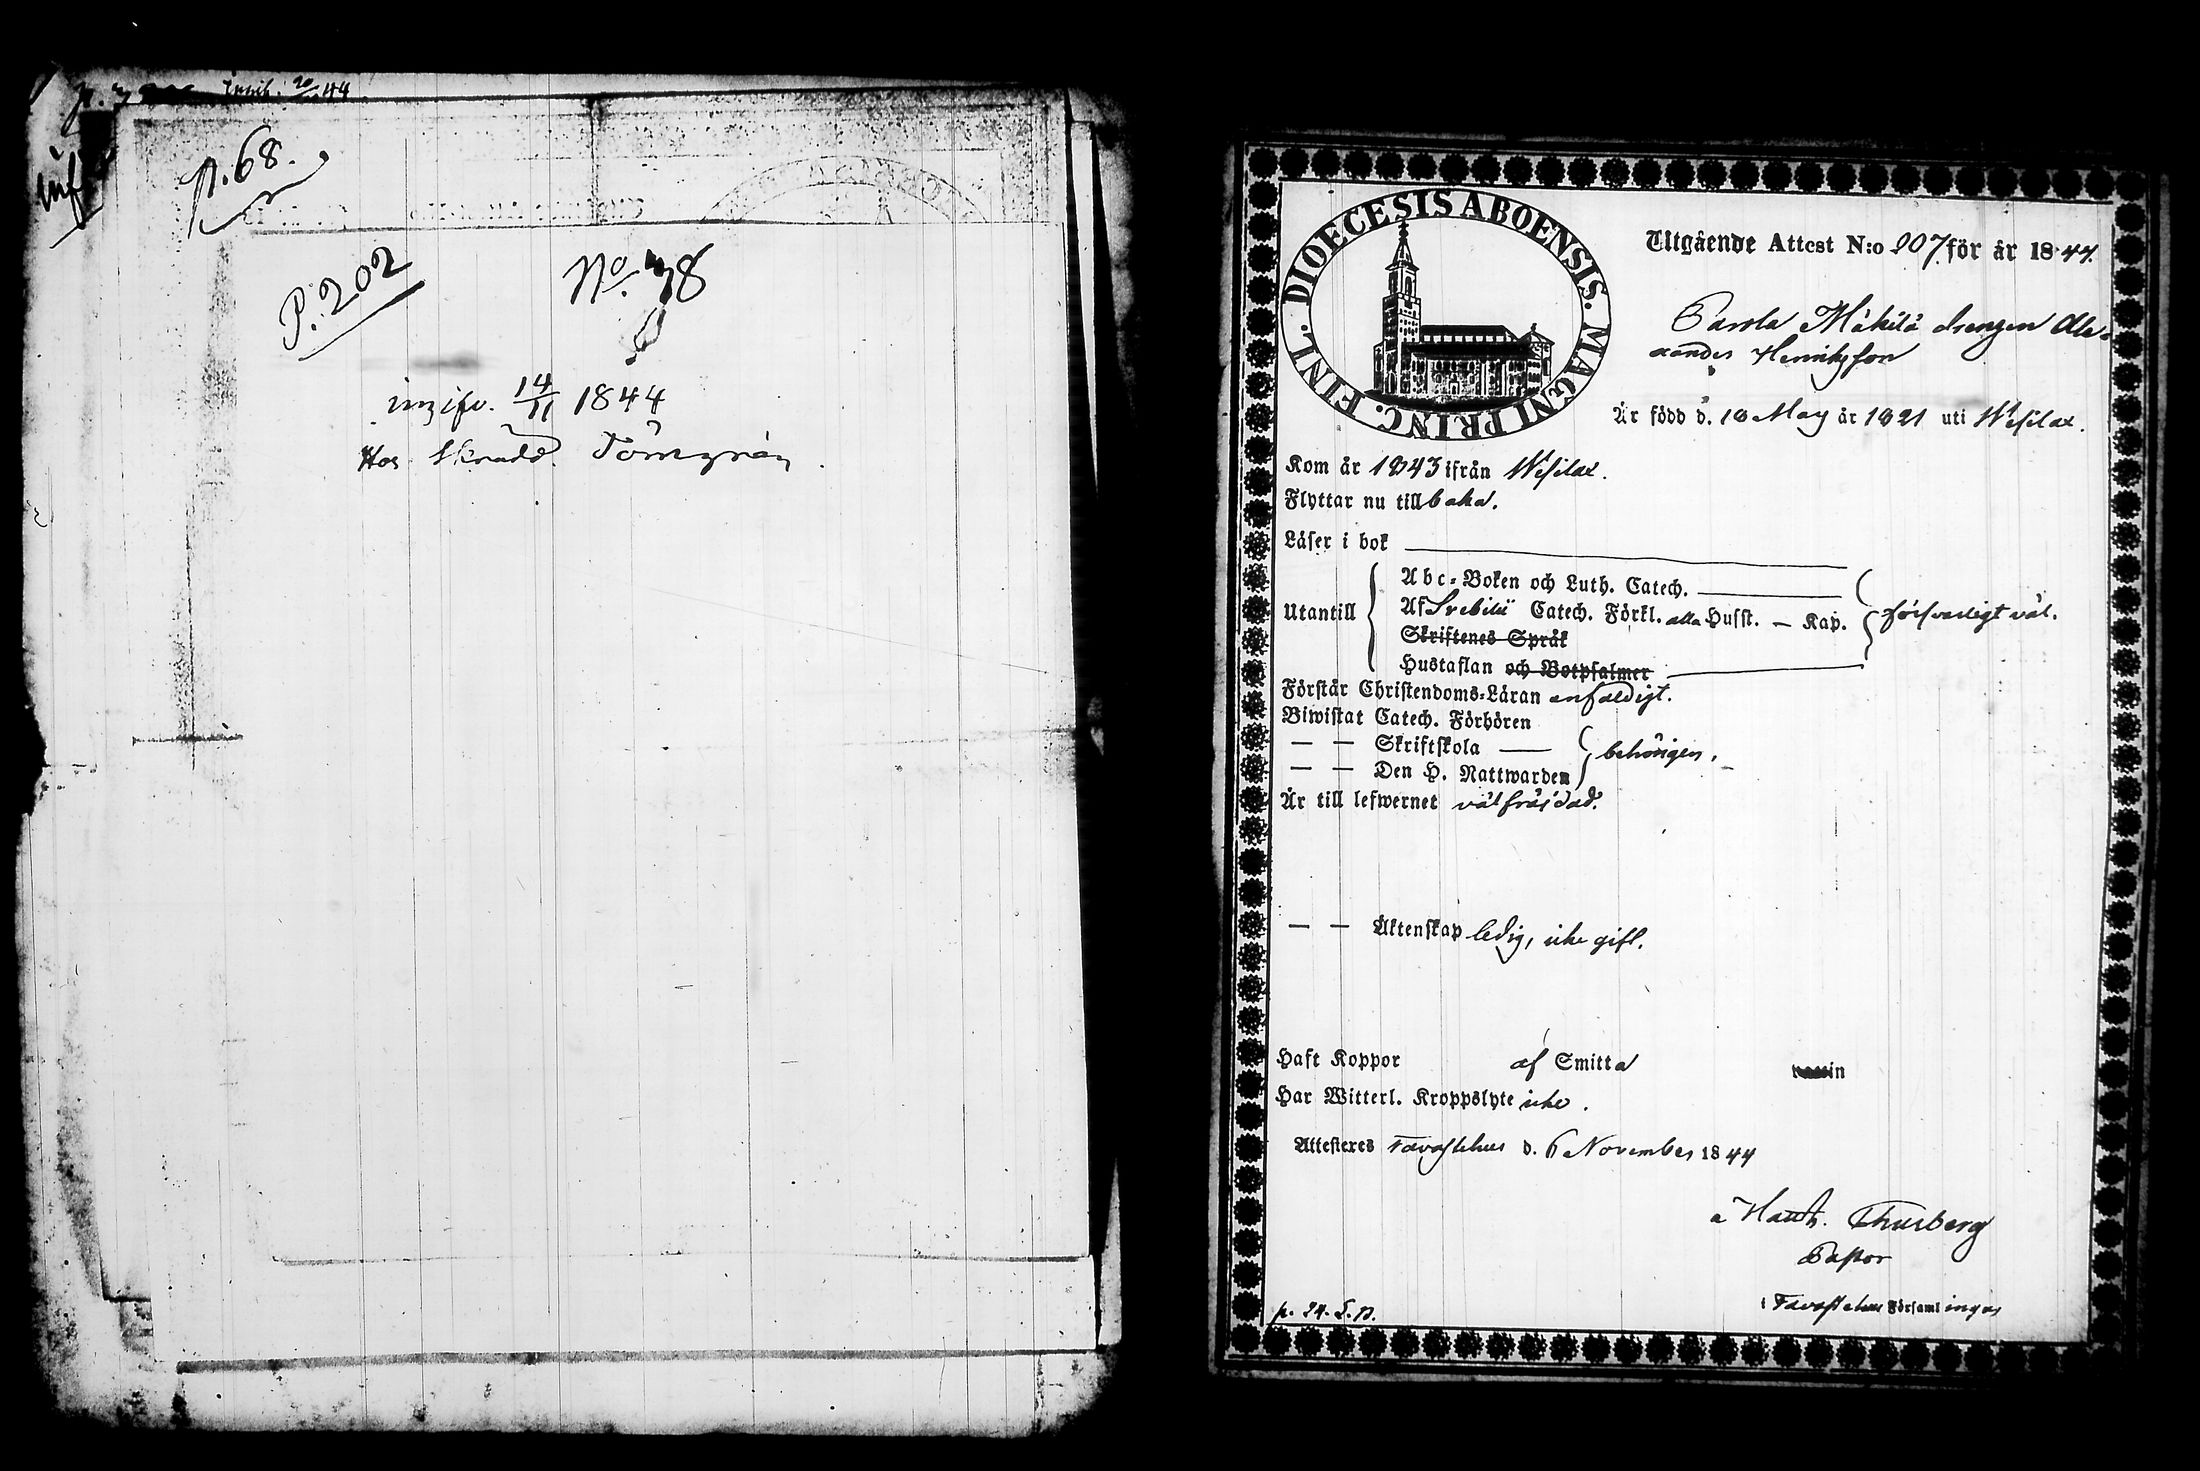 Innih. 20/11 44
p. 68.
P. 202
No. 78
inzifv. 14/11 1844
Hos Skradd. Törngrén.
DIOECESIS ABOENSIS. MAGNI PRINC. FINL.
Utgående Attest N:o 207 för år 1844.
Parola Mäkilä drengen Ale-
xander Henriksson
Är född d. 18 Maij år 1821 uti Wesilax.
Kom år 1843 ifrån Wesilax.
Flyttar nu tillbaka.
Läser i bok
Abc-Boken och Luth. Catech.
Utantill Af Svebilii Catech. Förkl. alla Husst. — Kap. försvarligt väl.
Skriftenes Språk
Hustaflan och Botpsalmer
Förstår Christendoms-Läran enfaldigt.
Biwistat Catech. Förhören
— — Skriftskola — behörigen.
— — Den H. Nattwarden
Är till lefwernet välfräjdad.
— — Äktenskap ledig, icke gift.
Haft Koppor af Smitta
Har Witterl. Kroppslyte icke.
Attesteres Tavastehus d. 6 November 1844
Thusberg
Pastor
i Tavastehus Församlingar
p. 24. L. B.